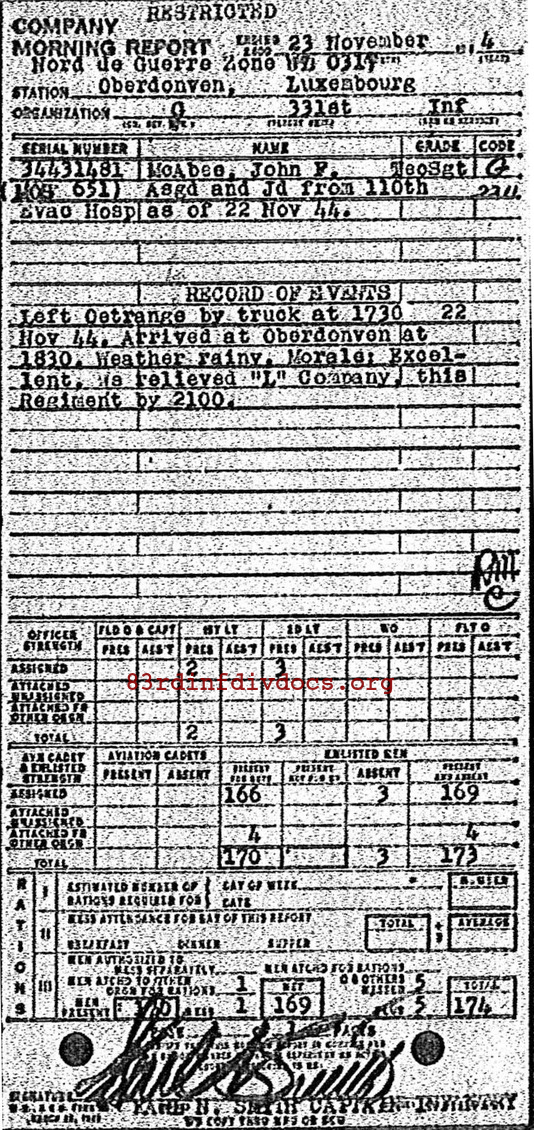 RESTRICTED
COMPANY
MORNING REPORT 23 November 4
Nord de Guerre Zone
STATION Oberdonven, Luxembourg
ORGANIZATION G 331st Inf
SERIAL NUMBER NAME GRADE CODE
34431481 McAbee, John F. TecSgt G
(MOS 651) Asgd and Jd from 110th
Evac Hosp as of 22 Nov 44.
RECORD OF EVENTS
Left Oetrange by truck at 1730 22
Nov 44. Arrived at Oberdonven at
1830. Weather rainy. Morale: Excel-
lent. We relieved "L" Company, this
Regiment by 2100.
OFFICER STRENGTH FLD O & CAPT 1ST LT 2D LT WO FLT O
PRES ABS'T PRES ABS'T PRES ABS'T PRES ABS'T PRES ABS'T
ASSIGNED 2 3
83rdinfdivdocs.org
ATTACHED UNASSIGNED
ATTACHED FR OTHER ORGN
TOTAL 2 3
AVN CADET & ENLISTED STRENGTH AVIATION CADETS ENLISTED MEN
PRESENT ABSENT PRESENT FOR DUTY ABSENT PRESENT AND ABSENT
ASSIGNED 166 3 169
ATTACHED UNASSIGNED
ATTACHED FR OTHER ORGN 4 4
TOTAL 170 3 173
RATIONS
I ESTIMATED NUMBER OF RATIONS REQUIRED FOR DAY OF WEEK DATE NUMBER
II MESS ATTENDANCE FOR DAY OF THIS REPORT TOTAL ÷ 3 AVERAGE
BREAKFAST DINNER SUPPER
III MEN AUTHORIZED TO MESS SEPARATELY MEN ATCHD FOR RATIONS
MEN ATCHD TO OTHER ORGN FOR RATIONS 1 NET O & OTHERS MESSED 5 TOTAL
MEN PRESENT 170 LESS 1 169 PLUS 5 174
SIGNATURE
SMITH CAPTAIN INFANTRY